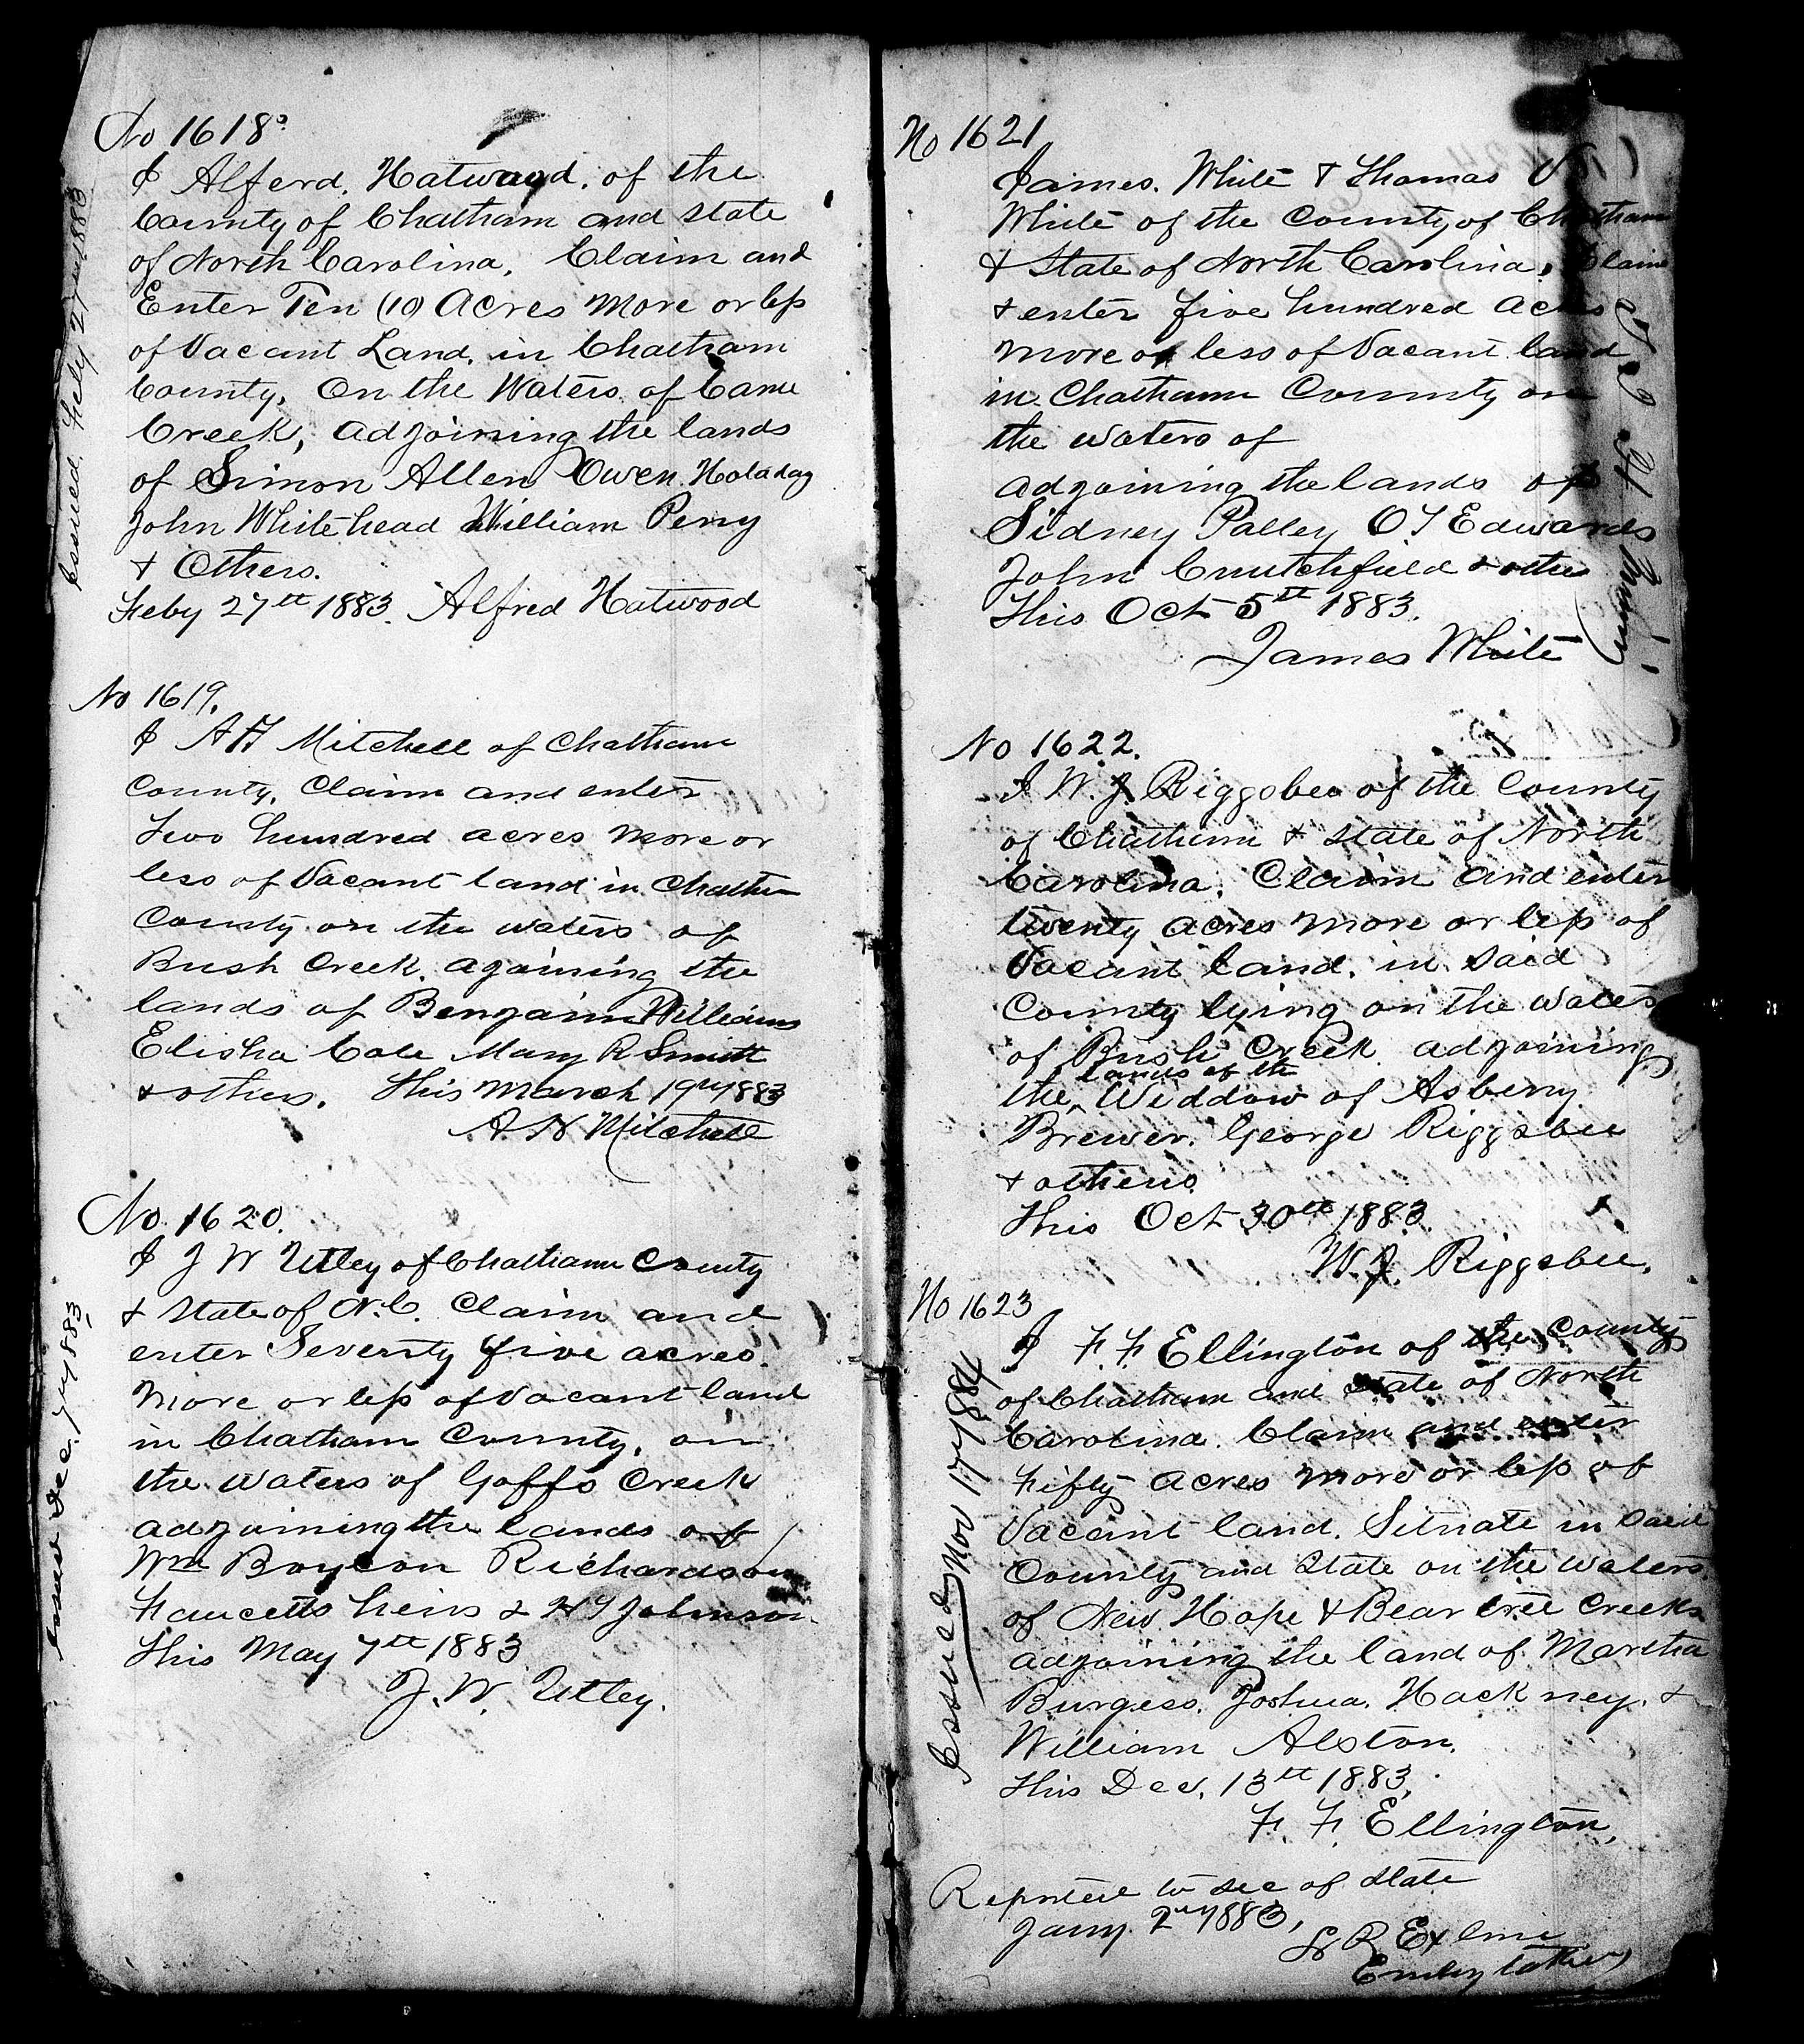 No 1618
I Alferd. Hatwood. of the
County of Chatham and State
of North Carolina, Claim and
Enter Ten (10) Acres More or less
of Vacant Land, in Chatham
County, On the Waters of Cane
Creek, adjoining the lands
of Simon Allen Owen Holaday
John Whitehead William Perry
& Others.
Feby 27th 1883. Alfred Hatwood
Issued. Feby 27th 1883
No 1619.
I A H Mitchell of Chatham
County, Claim and enter
Two hundred acres more or
less of Vacant land in Chatham
County on the waters of
Bush Creek. ajoining the
lands of Benjamin Williams
Elisha Cole Mary R Smith
& others. This March 19th 1883
A. H Mitchell
No. 1620.
I J W Utley of Chatham County
& State of N.C. Claim and
enter Seventy five acres.
More or less of Vacant land
in Chatham County, on
the waters of Goffs Creek
adjoining the lands of
Wm Boycon Richardson
Faucetts heirs & H T Johnson
This May 7th 1883
J. W. Utley.
Issued Dec. 7th 1883
No 1621
James. White & Thomas
White of the County of Chatham
& State of North Carolina, Claim
& enter five hundred acres
more or less of Vacant land
in Chatham County on
the waters of
adjoining the lands of
Sidney Polley O T Edwards
John Crutchfield & others
This Oct 5th 1883.
James White
No 1622.
I W. J. Riggsbee of the County
of Chatham & State of North
Carolina. Claim and enter
twenty acres more or less of
Vacant land. in Said
County lying on the waters
of Bush Creek adjoining
lands of the
the Widdow of Asberry
Brewer. George Riggsbee
& others.
This Oct 30th 1883.
W. J. Riggsbee.
No 1623
I F. F. Ellington of the County
of Chatham and State of North
Carolina. Claim and enter
Fifty acres more or less of
Vacant land. Situate in Said
County and State on the waters
of New Hope & Bear tree Creeks
adjoining the land of Martha
Burgess. Joshua. Hackney. &
William Alston.
This Dec. 13th 1883.
F. F. Ellington,
Issued Nov 17th 1884
Reported to Sec of State
Jany. 2nd 1883,
S R Exline
Entry taker